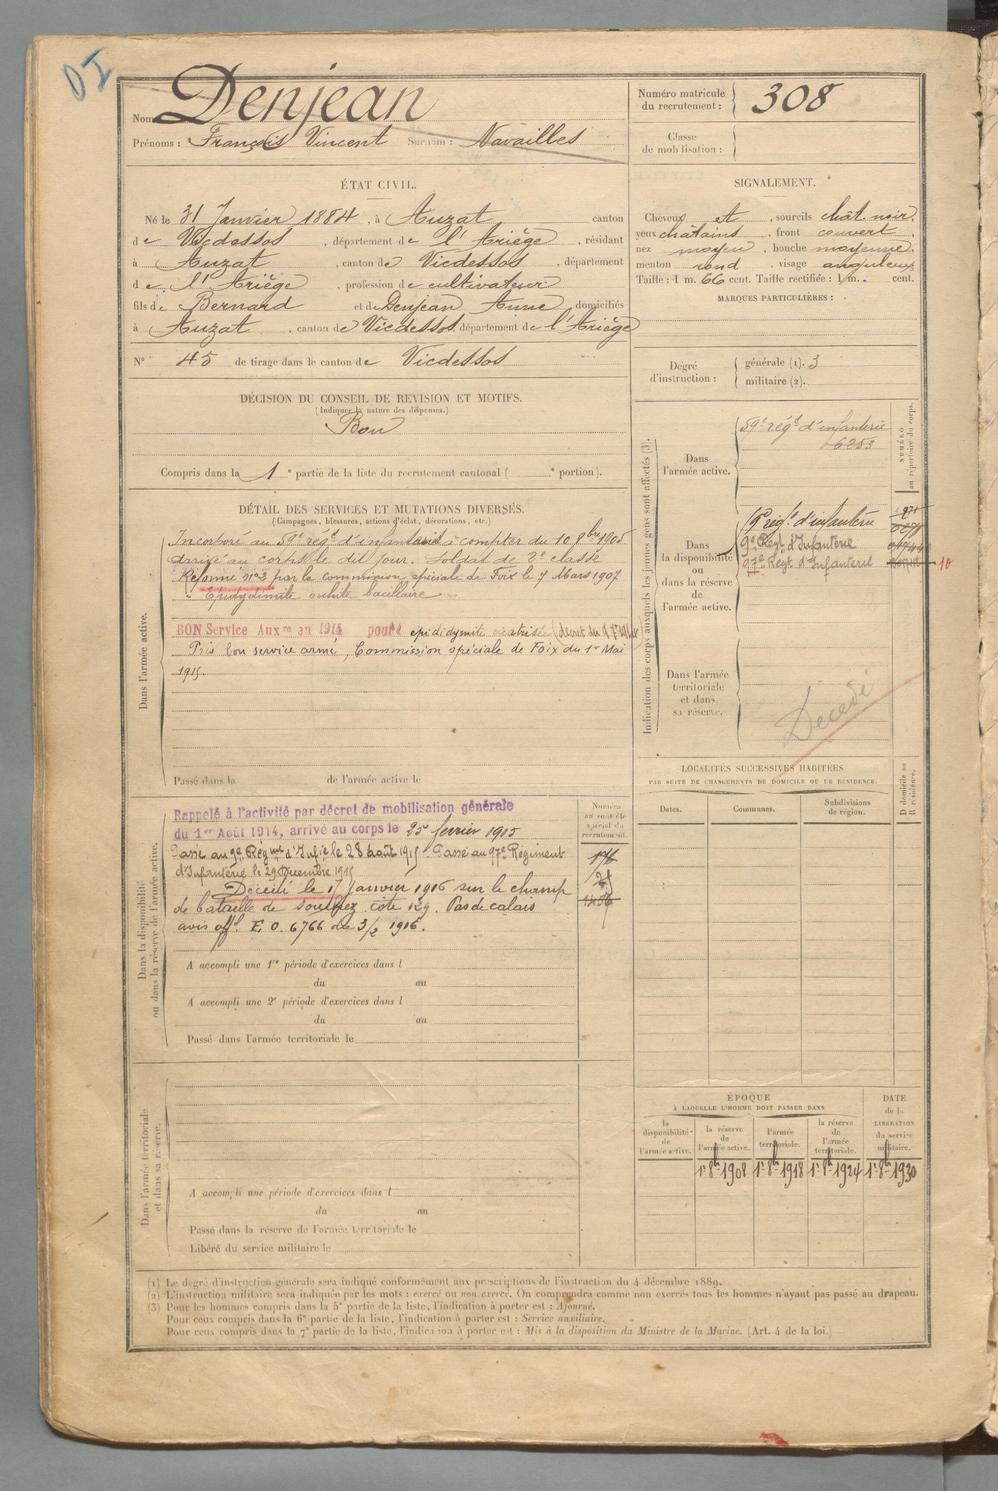 DI
Nom Denjean
Prénoms : François Vincent Surnom : Navailles
Numéro matricule du recrutement : 308
Classe de mobilisation :
ÉTAT CIVIL.
Né le 31 Janvier 1884, à Auzat, canton
de Vicdessos, département de l'Ariège, résidant
à Auzat, canton de Vicdessos, département
de l'Ariège, profession de cultivateur
fils de Bernard et de Denjean Anne, domiciliés
à Auzat, canton de Vicdessos département de l'Ariège
N° 45 de tirage dans le canton de Vicdessos
SIGNALEMENT.
Cheveux et , sourcils chât. noir,
yeux châtains, front couvert,
nez moyen, bouche moyenne,
menton rond, visage anguleux
Taille : 1 m. 66 cent. Taille rectifiée : 1 m. cent.
MARQUES PARTICULIÈRES :
Degré d'instruction :
générale (1). 3
militaire (2).
DÉCISION DU CONSEIL DE REVISION ET MOTIFS.
(Indiquer la nature des dispenses.)
Bon
Compris dans la 1e partie de la liste du recrutement cantonal ( e portion).
DÉTAIL DES SERVICES ET MUTATIONS DIVERSES.
(Campagnes, blessures, actions d'éclat, décorations, etc.)
Dans l'armée active.
Incorporé au 59e régt d'infanterie à compter du 10 8bre 1905
arrivé au corps le dit jour. Soldat de 2e classe
Réformé n°2 par la commission spéciale de Foix le 7 Mars 1907
Epididymite bacillaire
BON Service Auxre en 1914 pour épididymite cicatrisée
Pris bon service armé, Commission spéciale de Foix du 1er Mai
1915.
Passé dans la de l'armée active le
Indication des corps auxquels les jeunes gens sont affectés (3).
NUMÉRO au répertoire du corps.
Dans l'armée active.
59e régt d'infanterie
6253
Dans la disponibilité ou dans la réserve de l'armée active.
régt d'infanterie
9e Régt d'Infanterie
97e Régt d'Infanterie
10
Dans l'armée territoriale et dans sa réserve.
Décédé
LOCALITÉS SUCCESSIVES HABITÉES
PAR SUITE DE CHANGEMENTS DE DOMICILE OU DE RÉSIDENCE.
Dates.
Communes.
Subdivisions de région.
D domicile ou R résidence.
Dans la disponibilité ou dans la réserve de l'armée active.
Numéro au contrôle spécial du recrutement.
Rappelé à l'activité par décret de mobilisation générale
du 1er Août 1914, arrivé au corps le 25 février 1915
Passé au 9e Régimt d'Infie le 28 août 1915. Passé au 97e Régiment
d'Infanterie le 29 Décembre 1915
Décédé le 17 Janvier 1916 sur le champ
de bataille de Souchez côte 119. Pas de calais
avis offl. E. O. 6766 du 3/2 1916.
A accompli une 1re période d'exercices dans l
du au
A accompli une 2e période d'exercices dans l
du au
Passé dans l'armée territoriale le
Dans l'armée territoriale et dans sa réserve.
A accompli une période d'exercices dans l
du au
Passé dans la réserve de l'armée territoriale le
Libéré du service militaire le
ÉPOQUE
À LAQUELLE L'HOMME DOIT PASSER DANS
DATE de la LIBÉRATION du service militaire.
la disponibilité de l'armée active.
la réserve de l'armée active.
l'armée territoriale.
la réserve de l'armée territoriale.
1er 8bre 1908 1er 8bre 1918 1er 8bre 1924 1er 8bre 1930
(1) Le degré d'instruction générale sera indiqué conformément aux prescriptions de l'instruction du 4 décembre 1889.
(2) L'instruction militaire sera indiquée par les mots : exercé ou non exercé. On comprendra comme non exercés tous les hommes n'ayant pas passé au drapeau.
(3) Pour les hommes compris dans la 5e partie de la liste, l'indication à porter est : Ajourné.
Pour ceux compris dans la 6e partie de la liste, l'indication à porter est : Service auxiliaire.
Pour ceux compris dans la 7e partie de la liste, l'indication à porter est : Mis à la disposition du Ministre de la Marine. (Art. 4 de la loi.)